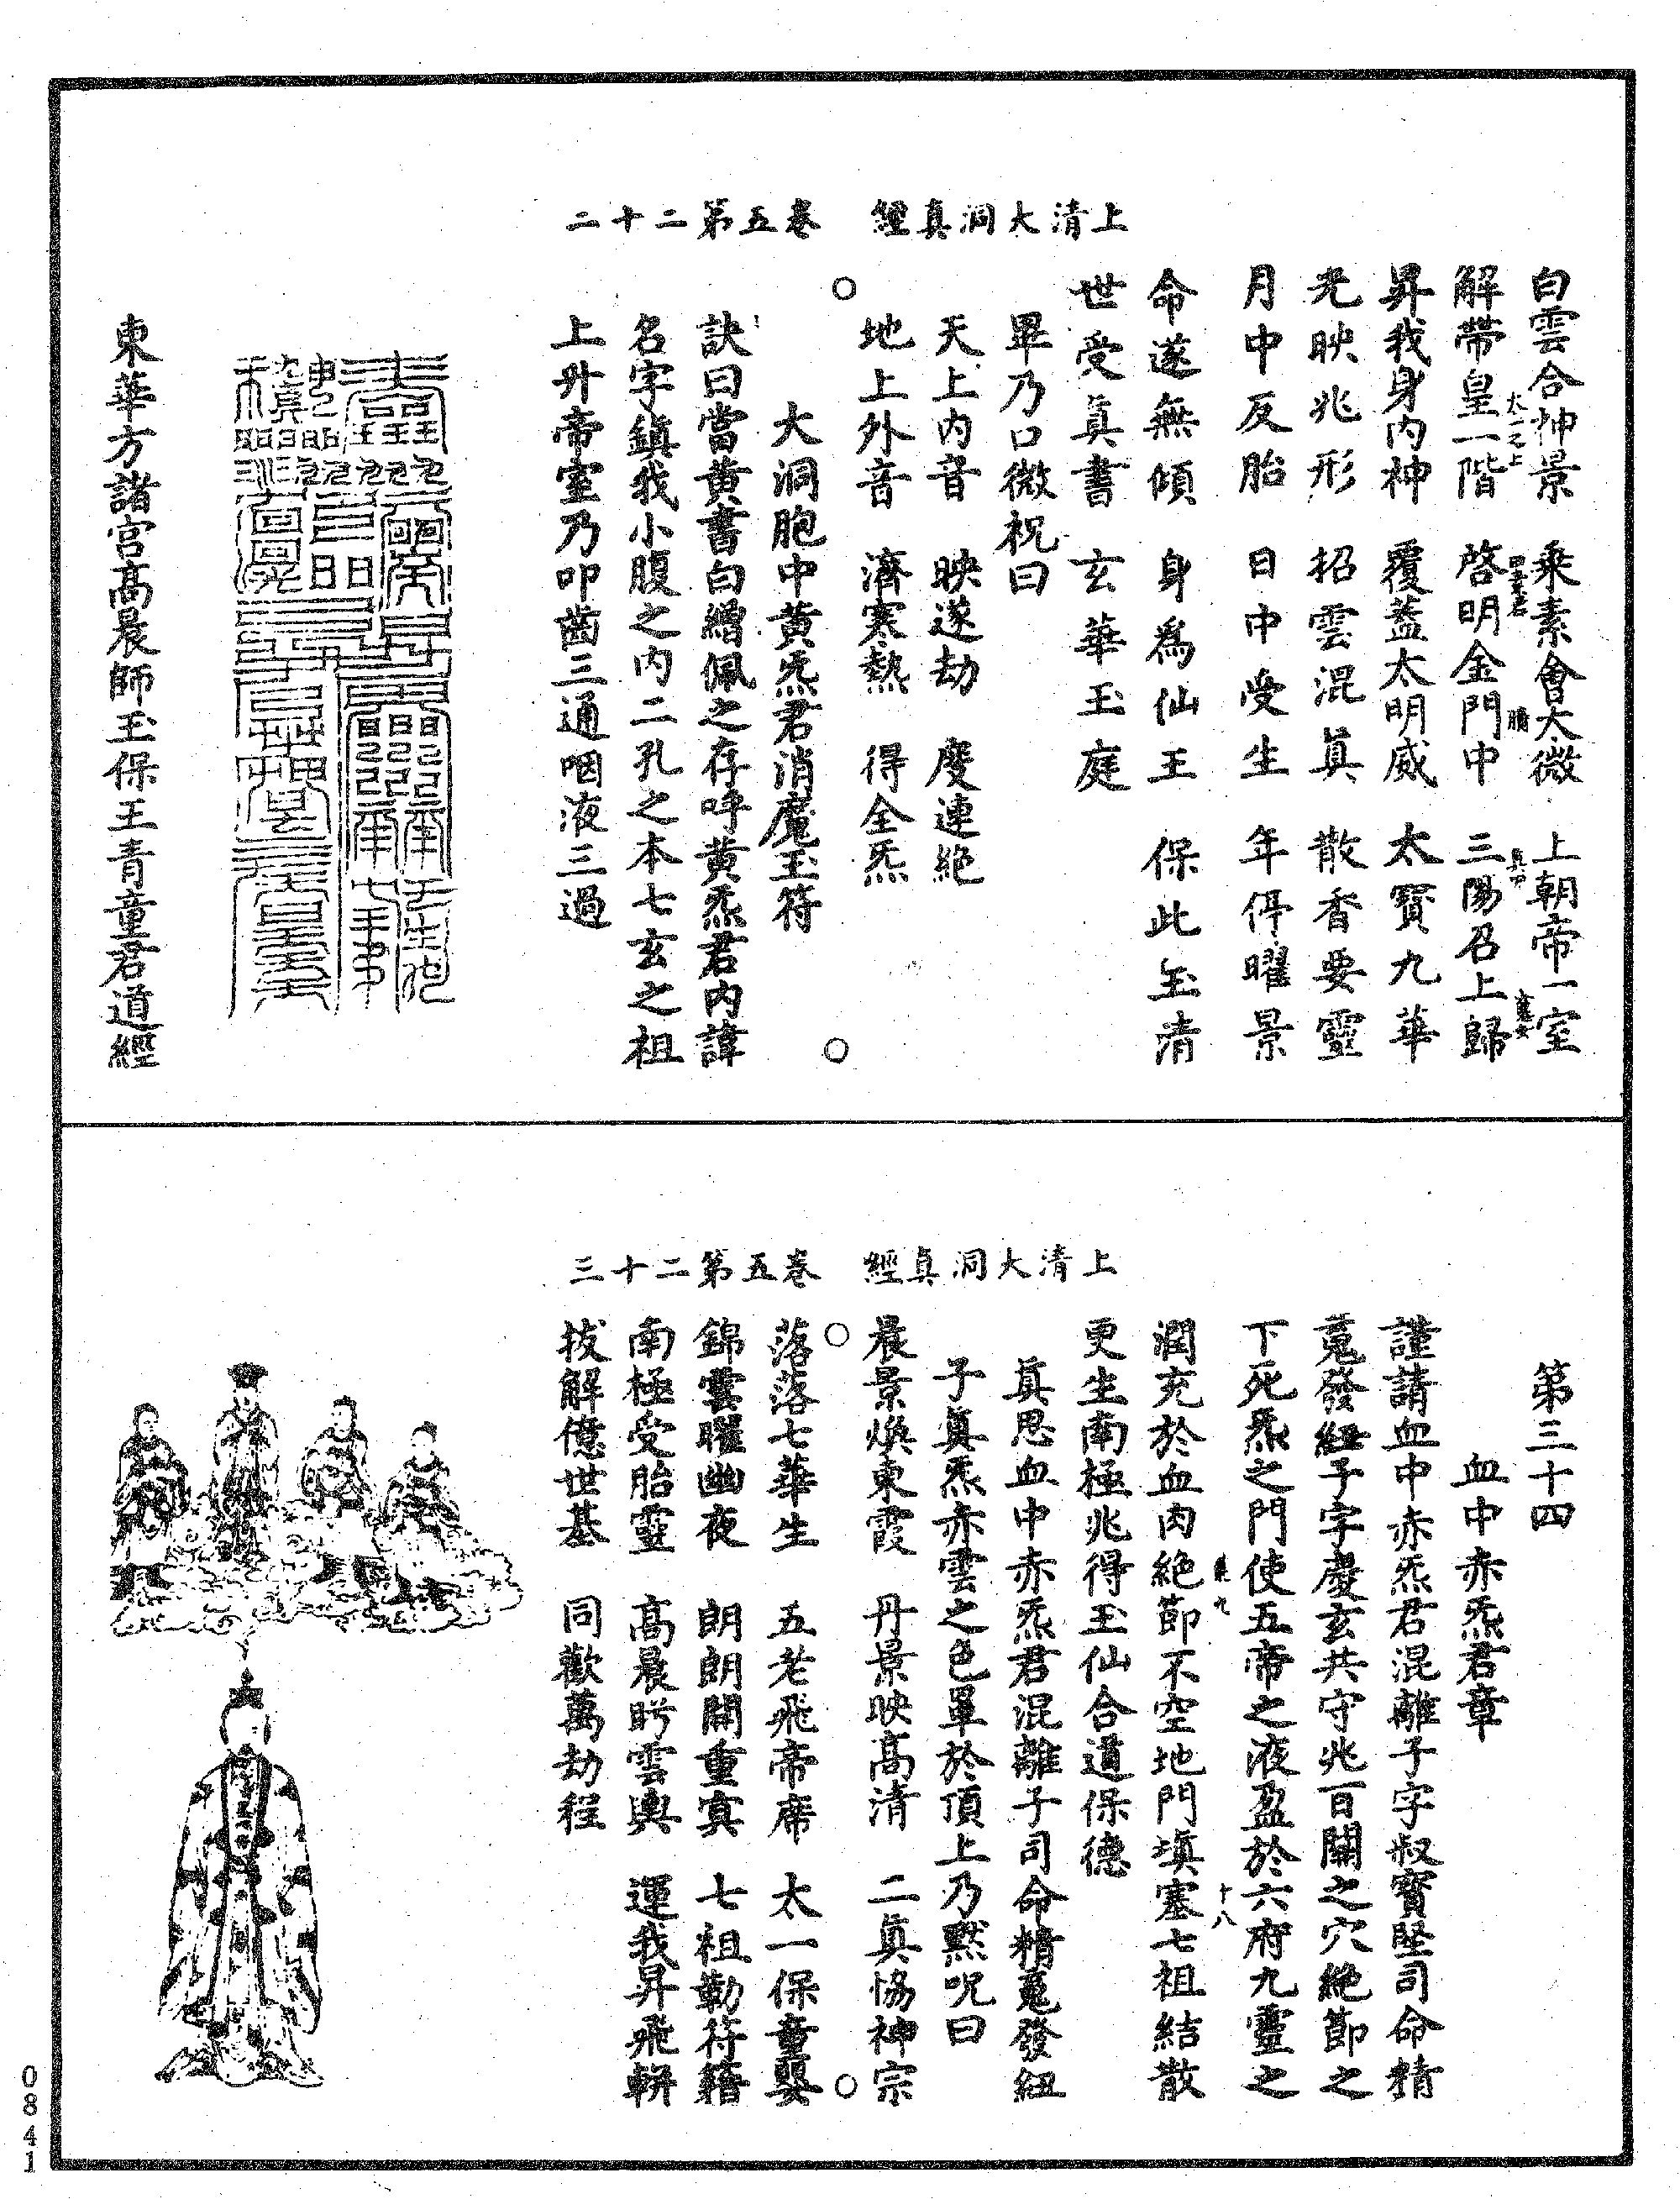 上清大洞真經　卷五第二十二
白雲合神景　乘素會太微　上朝帝一室
解帶皇一階　啓明金門中　三陽召上歸
太一之上
臍
昇我身內神　覆蓋太明威　太寶九華
光映兆形　招雲混真　散香要靈
月中反胎　日中受生　年停曜景
命遂無傾　身為仙王　保此玉清
世受真書　玄華玉庭
畢乃口微祝曰
天上內音　映遂劫　度連絕
地上外音　濟寒熱　得全炁
大洞胞中黃炁君消魔玉符
訣曰當黃書白繒佩之存呼黃炁君內諱
名字鎮我小腹之內二孔之本七玄之祖
上升帝室乃叩齒三通咽液三過
東華方諸宮高晨師玉保王青童君道經
上清大洞真經　卷五第二十三
第三十四
血中赤炁君章
謹請血中赤炁君混離子字叔寶堅司命精
䰟發紐子字慶玄共守兆百關之穴絕節之
下死炁之門使五帝之液盈於六府九靈之
十八
潤充於血肉絕節不空地門塡塞七祖結散
更生南極兆得玉仙合道保德
真思血中赤炁君混離子司命精䰟發紐
子真炁赤雲之色罩於頂上乃默呪曰
晨景煥東霞　丹景映高清　二真恊神宗
落落七華生　五老飛帝席　太一保童嬰
錦雲曜幽夜　朗朗開重寘　七祖勒符籍
南極受胎靈　高晨盻雲輿　運我昇飛軿
拔解億世基　同歡萬劫程
0841